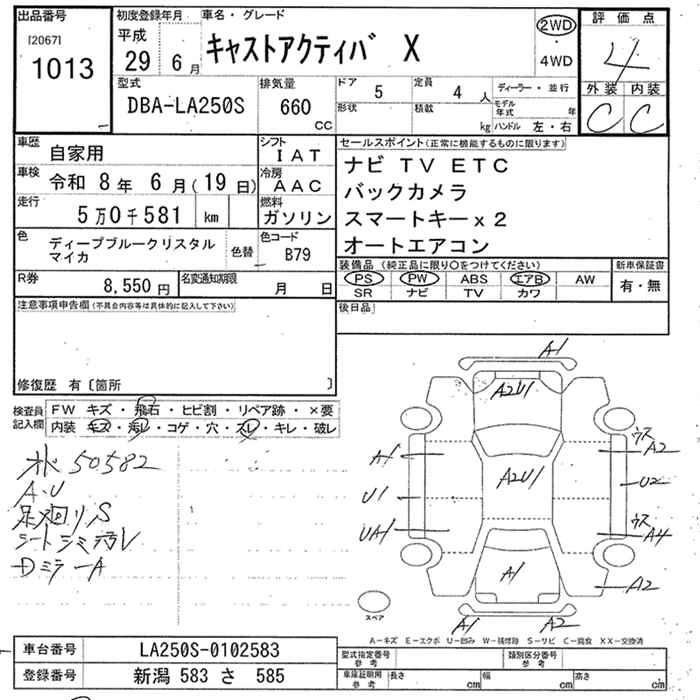 出品番号
[2067]
1013
初度登録年月
平成
29 6月
車名・グレード
キャストアクティバ X
2WD
・
4WD
評価点
4
外装 内装
C C
型式
DBA-LA250S
排気量
660
CC
ドア
5
定員
4 人
ディーラー・並行
形状
積載
kg
モデル年式 年
ハンドル 左・右
車歴
自家用
シフト
IAT
車検
令和 8年 6月(19日)
冷房
AAC
走行
5万0千581 km
燃料
ガソリン
色
ディープブルークリスタル
マイカ
色替
色コード
B79
R券
8,550円
名変通知期限
月 日
セールスポイント(正常に機能するものに限ります)
ナビ TV ETC
バックカメラ
スマートキーx2
オートエアコン
装備品 (純正品に限り○をつけてください)
PS PW ABS エアB AW
SR ナビ TV カワ
新車保証書
有・無
後日品
注意事項申告欄 (不具合内容等は具体的に記入して下さい)
修復歴 有〔箇所 〕
検査員
記入欄
FW キズ・飛石・ヒビ割・リペア跡・×要
内装 キズ・汚レ・コゲ・穴・スレ・キレ・破レ
オド 50582
A・U
足廻リS
シートシミ汚レ
Dミラー A
A1
A2U1
A1
U1
UA1
A2U1
ウス
A2
U2
ウス
A4
A1
A2
A1
A2
スペア
A-キズ E-エクボ U-凹み W-補修跡 S-サビ C-腐食 XX-交換済
車台番号
LA250S-0102583
登録番号
新潟 583 さ 585
型式指定番号
参考
類別区分番号
参考
車庫証明用
参考
長さ cm
幅 cm
高さ cm